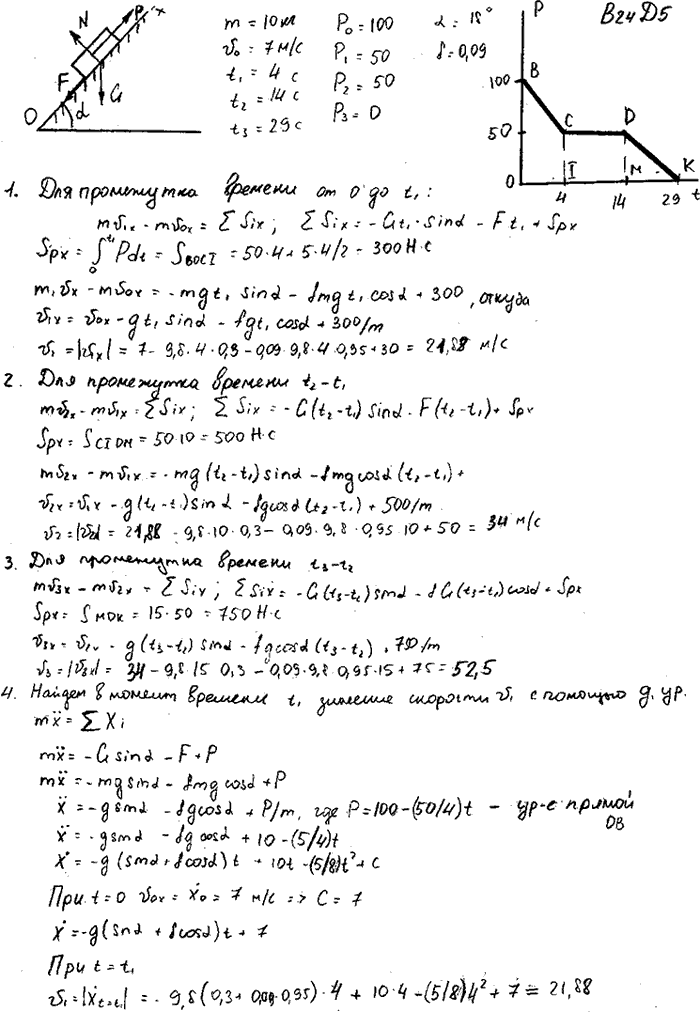 N P x
F G
O α
m = 10 кг P₀ = 100 α = 18°
v₀ = 7 м/с P₁ = 50 f = 0,09
t₁ = 4 с P₂ = 50
t₂ = 14 с P₃ = 0
t₃ = 29 с
В24 Д5
P
100 B
50 C D
0 I M K
4 14 29 t
1. Для промежутка времени от 0 до t₁ :
mv₁ₓ - mv₀ₓ = ∑Sᵢₓ ; ∑Sᵢₓ = -Gt₁·sinα - Ft₁ + Sₚₓ
Sₚₓ = ∫₀^t₁ Pdt = S_BOCI = 50·4 + 5·4/2 = 300 Н·с
m₁vₓ - mv₀ₓ = -mgt₁ sinα - fmgt₁ cosα + 300, откуда
v₁ₓ = v₀ₓ - gt₁ sinα - fgt₁ cosα + 300/m
v₁ = |v₁ₓ| = 7 - 9,8·4·0,3 - 0,09·9,8·4·0,95 + 30 = 21,88 м/с
2. Для промежутка времени t₂-t₁
mv₂ₓ - mv₁ₓ = ∑Sᵢₓ ; ∑Sᵢₓ = -G(t₂-t₁) sinα - F(t₂-t₁) + Sₚₓ
Sₚₓ = S_CIDM = 50·10 = 500 Н·с
mv₂ₓ - mv₁ₓ = -mg(t₂-t₁)sinα - fmgcosα(t₂-t₁) +
v₂ₓ = v₁ₓ - g(t₂-t₁)sinα - fgcosα(t₂-t₁) + 500/m
v₂ = |v₂ₓ| = 21,88 - 9,8·10·0,3 - 0,09·9,8·0,95·10 + 50 = 34 м/с
3. Для промежутка времени t₃-t₂
mv₃ₓ - mv₂ₓ = ∑Sᵢₓ ; ∑Sᵢₓ = -G(t₃-t₂) sinα - fG(t₃-t₂)cosα + Sₚₓ
Sₚₓ = S_MDK = 15·50 = 750 Н·с
v₃ₓ = - g(t₃-t₂) sinα - fgcosα(t₃-t₂) + 750/m
v₃ = |v₃ₓ| = 34 - 9,8·15·0,3 - 0,09·9,8·0,95·15 + 75 = 52,5
4. Найдем в момент времени t₁ значение скорости v₁ с помощью д. ур.
mẍ = ∑Xᵢ
mẍ = -G sinα - F + P
mẍ = -mg sinα - fmg cosα + P
ẍ = -g sinα - fg cosα + P/m, где P = 100 - (50/4)t - ур-е прямой
DB
ẍ = -g sinα - fg cosα + 10 - (5/4)t
ẋ = -g (sinα + fcosα) t + 10t - (5/8)t² + c
При t = 0 v₀ₓ = ẋ₀ = 7 м/с => C = 7
ẋ = -g(sinα + fcosα)t + 7
При t = t₁
v₁ = |ẋ t=t₁| = - 9,8(0,3 + 0,09·0,95)·4 + 10·4 - (5/8)4² + 7 = 21,88